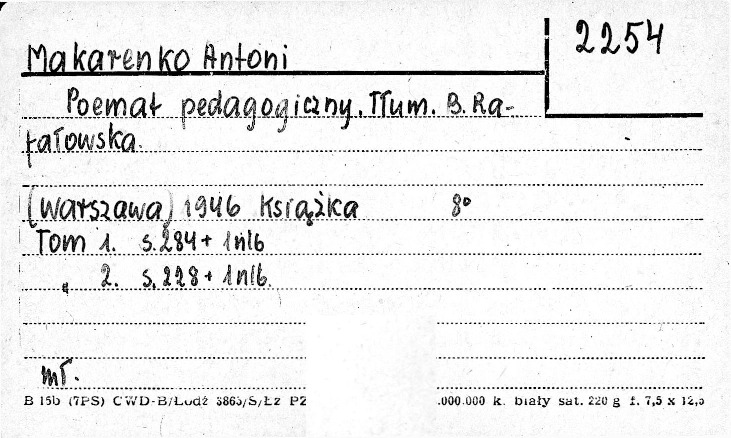 2254
Makarenko Antoni
Poemat pedagogiczny. Tłum. B. Ra-
fałowska.
(Warszawa) 1946 Książka 8°
Tom 1. s. 284 + 1 nlb
„ 2. s. 228 + 1 nlb.
mł.
B 15b (7PS) CWD-B/Łódź 3865/S/Łż PZ .000.000 k. biały sat. 220 g f. 7,5 x 12,5